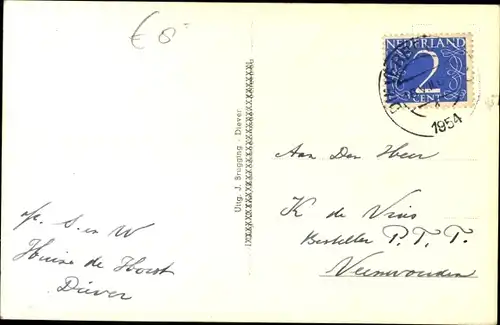 € 6
NEDERLAND
2
CENT
1954
Uitg. J. Brugging - Diever
Aan Den Heer
K de Vries
Besteller P.T.T.
Veenwouden
S. en W
Huize de Horst
Diever